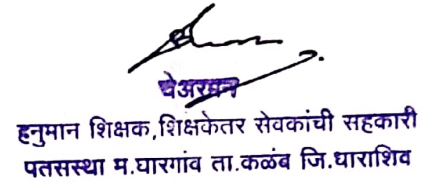 चेअरमन
हनुमान शिक्षक,शिक्षकेतर सेवकांची सहकारी
पतसस्था म.घारगांव ता.कळंब जि.धाराशिव